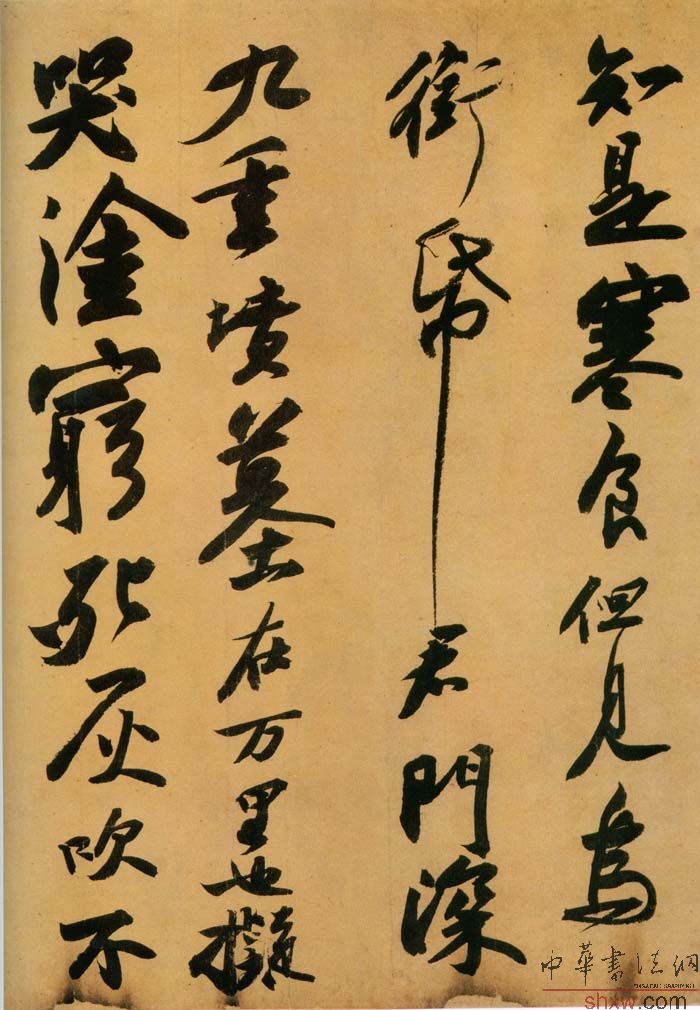 知是寒食但見烏
銜帋君門深
九重墳墓在万里也擬
哭塗窮死灰吹不
中華書法網
shxw.com